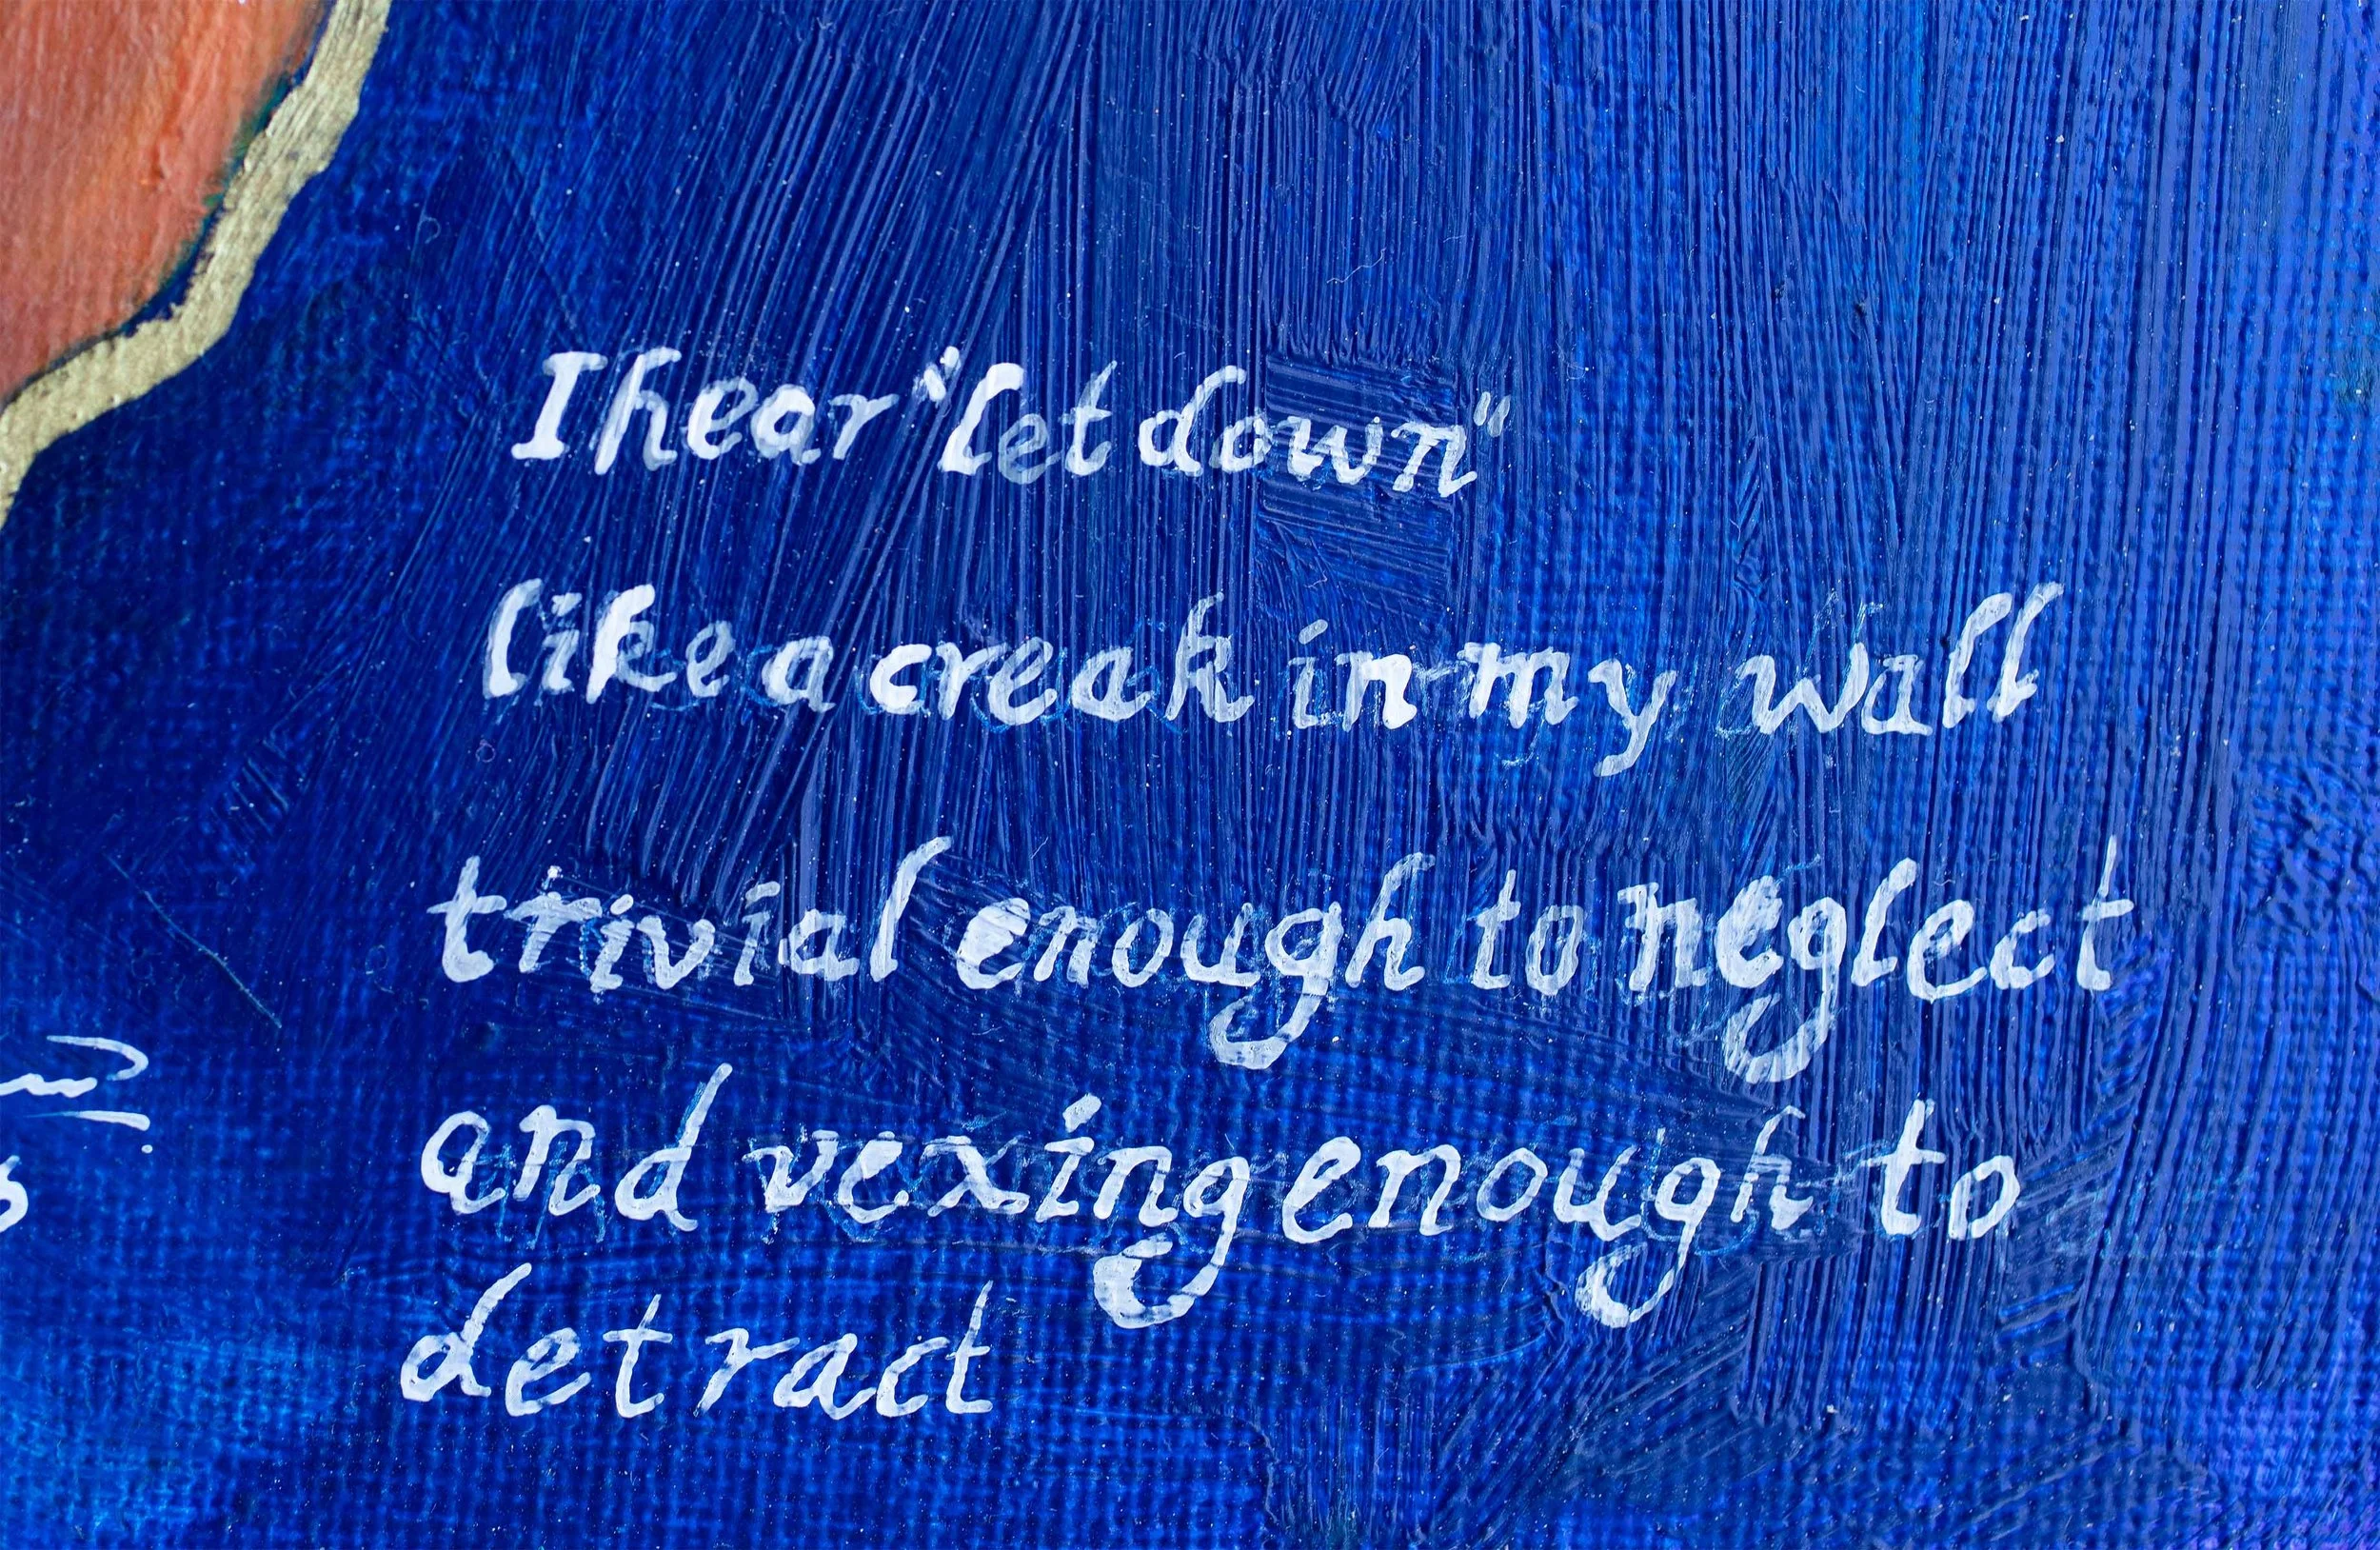 I hear "let down"
like a creak in my wall
trivial enough to neglect
and vexing enough to
detract